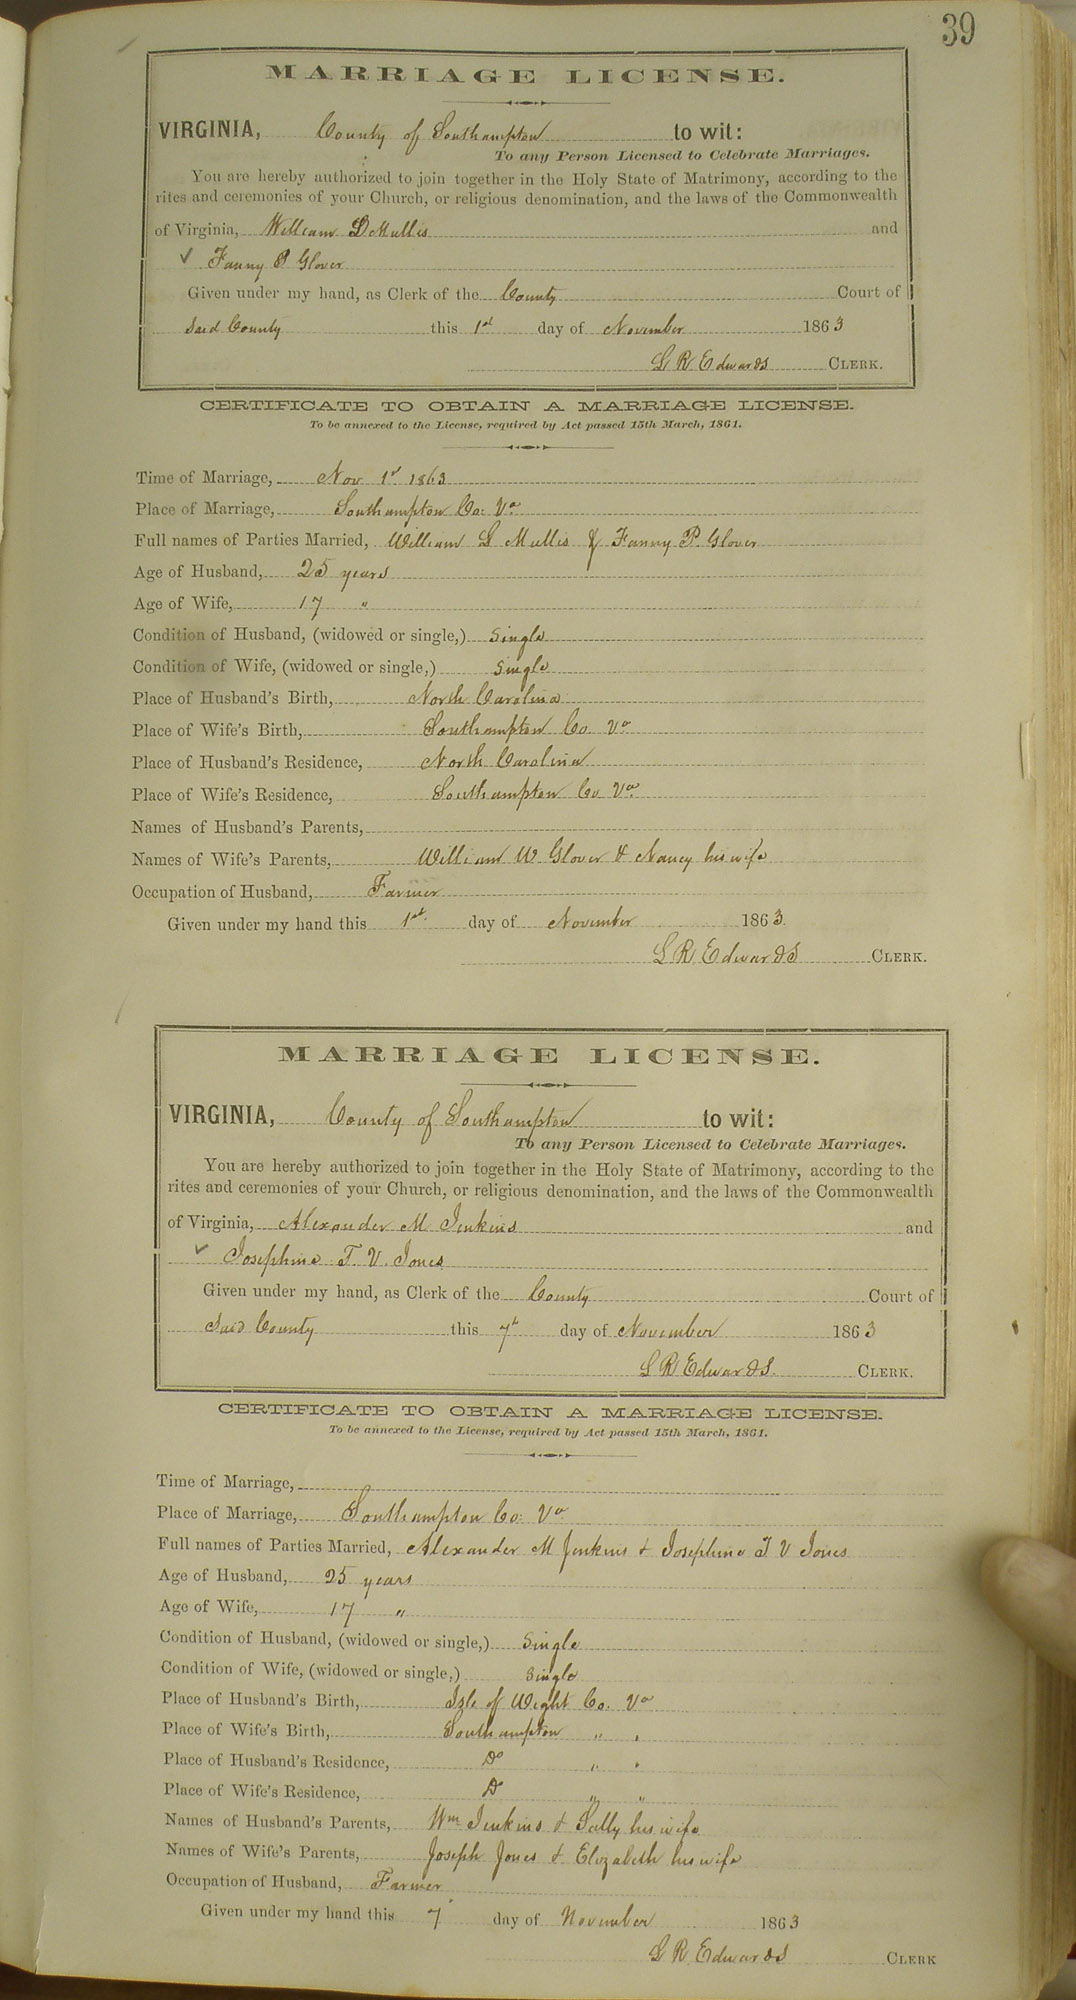 39
MARRIAGE LICENSE.
VIRGINIA, County of Southampton to wit:
To any Person Licensed to Celebrate Marriages.
You are hereby authorized to join together in the Holy State of Matrimony, according to the
rites and ceremonies of your Church, or religious denomination, and the laws of the Commonwealth
of Virginia, William Mullis and
✓ Fanny P Glover
Given under my hand, as Clerk of the County Court of
Said County this 1st day of November 1863
L R Edwards CLERK.
CERTIFICATE TO OBTAIN A MARRIAGE LICENSE.
To be annexed to the License, required by Act passed 15th March, 1861.
Time of Marriage, Nov 1st 1863
Place of Marriage, Southampton Co: Va
Full names of Parties Married, William Mullis & Fanny P. Glover
Age of Husband, 25 years
Age of Wife, 17 "
Condition of Husband, (widowed or single,) Single
Condition of Wife, (widowed or single,) Single
Place of Husband's Birth, North Carolina
Place of Wife's Birth, Southampton Co. Va
Place of Husband's Residence, North Carolina
Place of Wife's Residence, Southampton Co Va
Names of Husband's Parents,
Names of Wife's Parents, William W Glover & Nancy his wife
Occupation of Husband, Farmer
Given under my hand this 1st day of November 1863.
L R Edwards CLERK.
MARRIAGE LICENSE.
VIRGINIA, County of Southampton to wit:
To any Person Licensed to Celebrate Marriages.
You are hereby authorized to join together in the Holy State of Matrimony, according to the
rites and ceremonies of your Church, or religious denomination, and the laws of the Commonwealth
of Virginia, Alexander M Jenkins and
✓ Josephine T. V. Jones
Given under my hand, as Clerk of the County Court of
Said County this 7th day of November 1863
L R Edwards. CLERK.
CERTIFICATE TO OBTAIN A MARRIAGE LICENSE.
To be annexed to the License, required by Act passed 15th March, 1861.
Time of Marriage,
Place of Marriage, Southampton Co: Va
Full names of Parties Married, Alexander M Jenkins & Josephine T V Jones
Age of Husband, 25 years
Age of Wife, 17 "
Condition of Husband, (widowed or single,) Single
Condition of Wife, (widowed or single,) Single
Place of Husband's Birth, Isle of Wight Co. Va
Place of Wife's Birth, Southampton " "
Place of Husband's Residence, Do " "
Place of Wife's Residence, Do " "
Names of Husband's Parents, Wm Jenkins & Sally his wife
Names of Wife's Parents, Joseph Jones & Elizabeth his wife
Occupation of Husband, Farmer
Given under my hand this 7 day of November 1863
L R Edwards CLERK